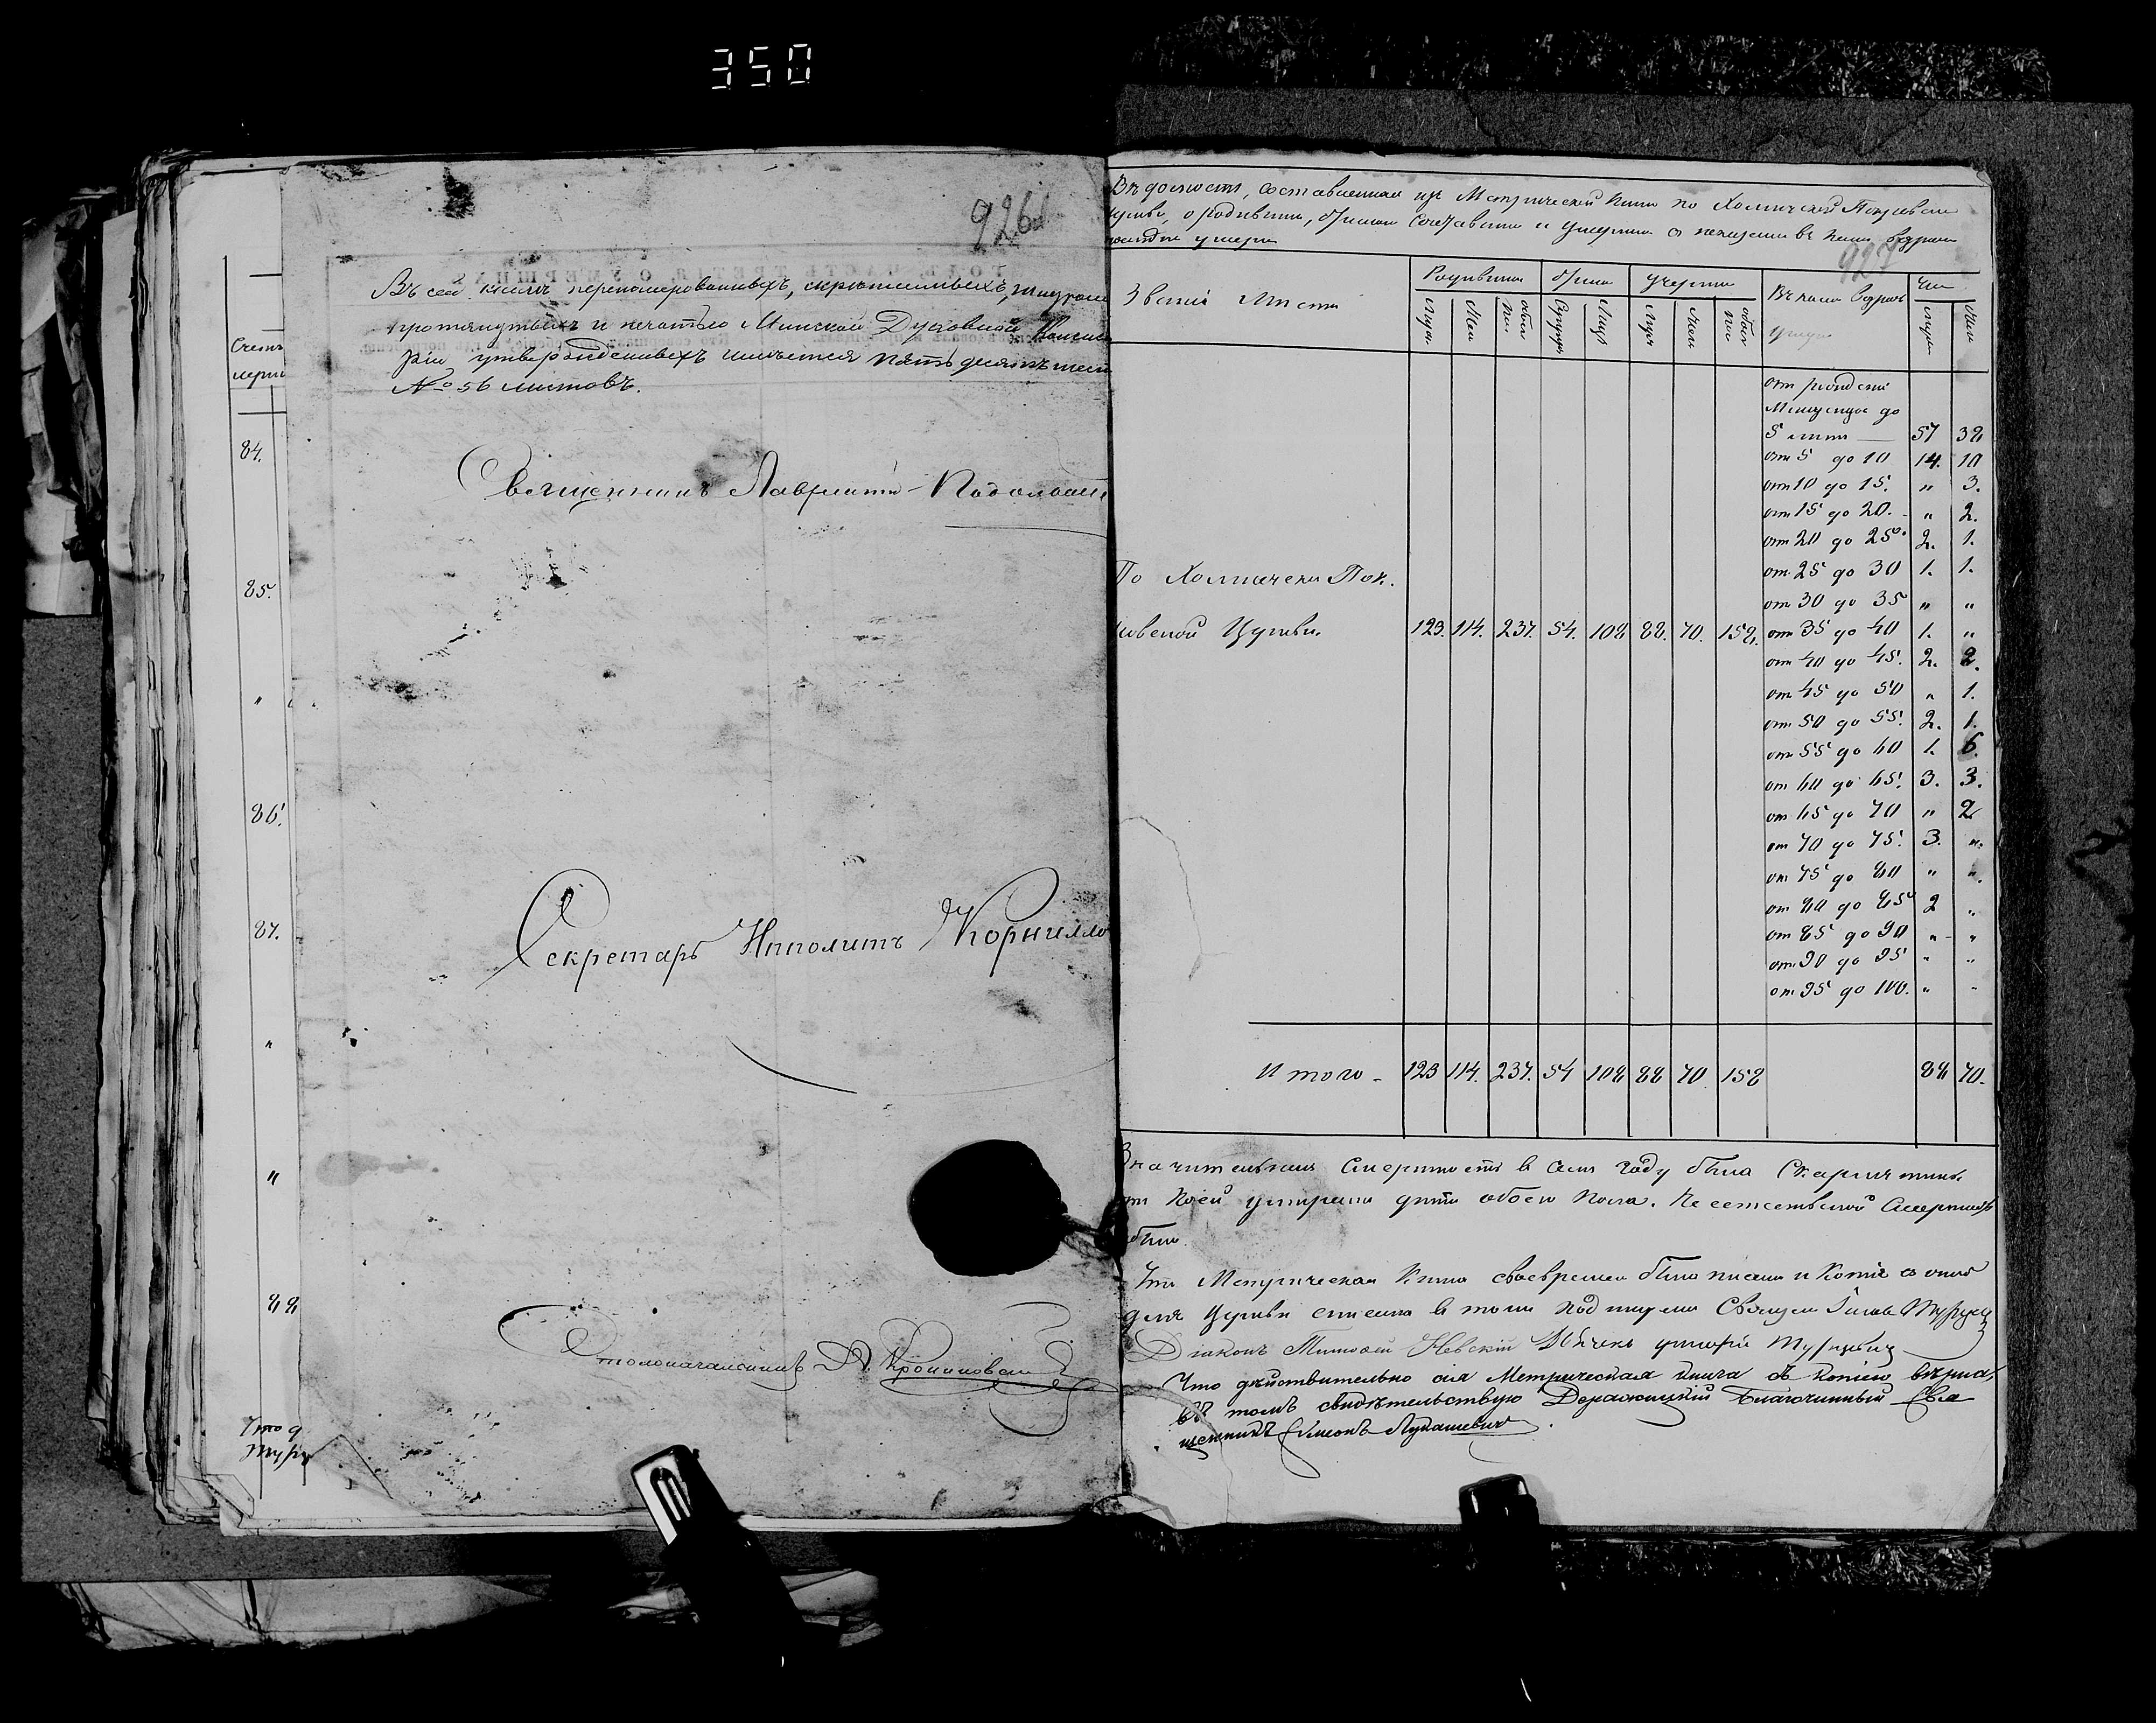 350
926
Въ сей книгѣ переномерованныхъ, скрѣпленныхъ, шнуромъ
протянутыхъ и печатью Минской Духовной Консисто
ріи утвержденныхъ имѣется пятьдесятъ шесть
№ 56 листовъ.
Священникъ Лаврентій
Секретарь Ипполитъ Корнилло
Столоначальникъ
Счетъ
умерш
84.
85.
"
86.
87.
"
"
88
Что д
Вѣдомость, составленная изъ Метрической книги по Холмичской Покровской
церкви, о родившихся, бракомъ сочетавшихся и умершихъ съ показаніемъ въ какихъ возрастахъ
927
Званіе мѣстъ
Родившихся Браковъ Умершихъ Въ какихъ возрастахъ Число
отъ рожденія
до
5 лѣтъ — 57 38
от 5 до 10 14. 10
от 10 до 15. " 3.
от 15 до 20. " 2.
от 20 до 25. 2. 1.
от 25 до 30 1. 1.
от 30 до 35 " "
По Холмичской Пок.
ровской Церкви. 123. 114. 237. 54. 108 88. 70. 158. от 35 до 40 1. "
от 40 до 45. 2. 2.
от 45 до 50 " 1.
от 50 до 55. 2. 1.
от 55 до 60 1. 6.
от 60 до 65. 3. 3.
от 65 до 70 " 2
от 70 до 75. 3. ".
от 75 до 80 " ".
от 80 до 85 2 "
от 85 до 90 " "
от 90 до 95 " "
от 95 до 100. " "
Итого - 123 114. 237. 54 108 88 70 158 88 70.
Значительная смертность в сем году была
от коей умирали дѣти обоего пола. Не естественной смертности
было
Метрическая книга своевременно была писана и копія с оной
для Церкви списана в томъ подписуемся Священникъ
Діаконъ Тимофей Невскій
Что дѣйствительно сія Метрическая книга съ копіею вѣрна,
въ томъ свидѣтельствую Благочинный Свя
щенникъ Симеонъ Лукашевичъ.